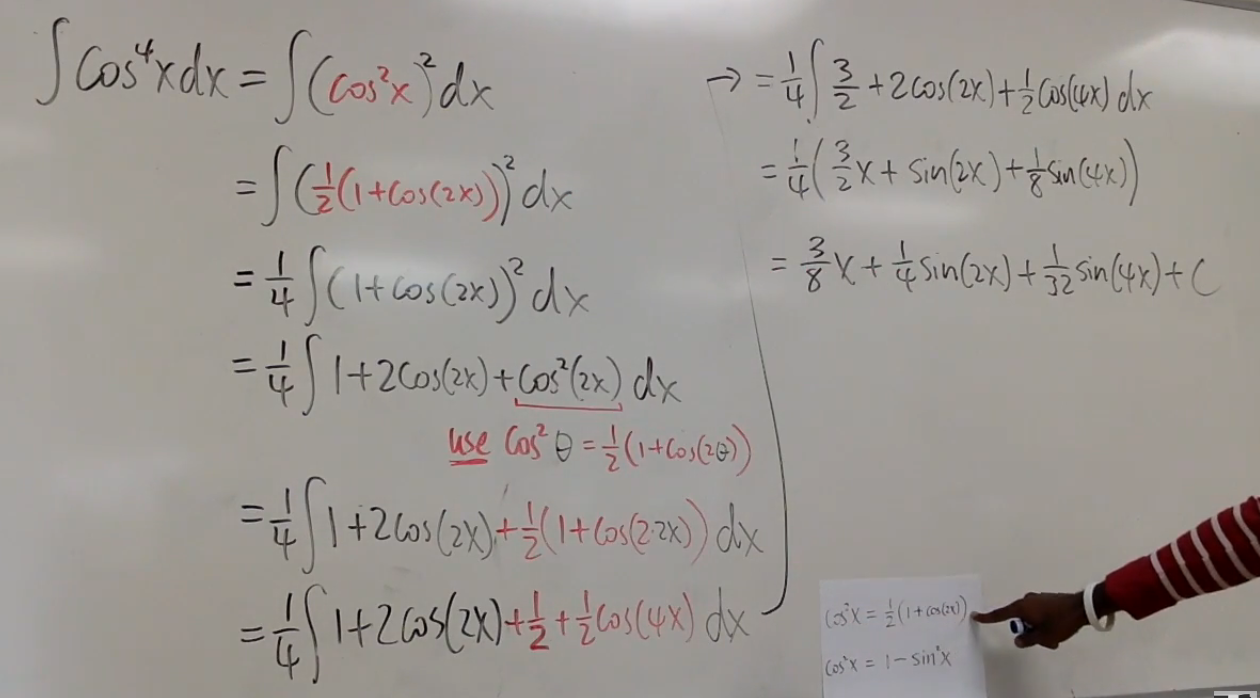 ∫ cos⁴x dx = ∫ (cos²x)² dx
= ∫ (1/2 (1+cos(2x)))² dx
= 1/4 ∫ (1+cos(2x))² dx
= 1/4 ∫ 1+2cos(2x)+cos²(2x) dx
use cos²θ = 1/2 (1+cos(2θ))
= 1/4 ∫ 1+2cos(2x)+1/2(1+cos(2·2x)) dx
= 1/4 ∫ 1+2cos(2x)+1/2+1/2cos(4x) dx
→ = 1/4 ∫ 3/2 + 2cos(2x)+1/2cos(4x) dx
= 1/4 (3/2 x + sin(2x) + 1/8 sin(4x))
= 3/8 x + 1/4 sin(2x) + 1/32 sin(4x) + C
cos²x = 1/2 (1+cos(2x))
cos²x = 1 - sin²x